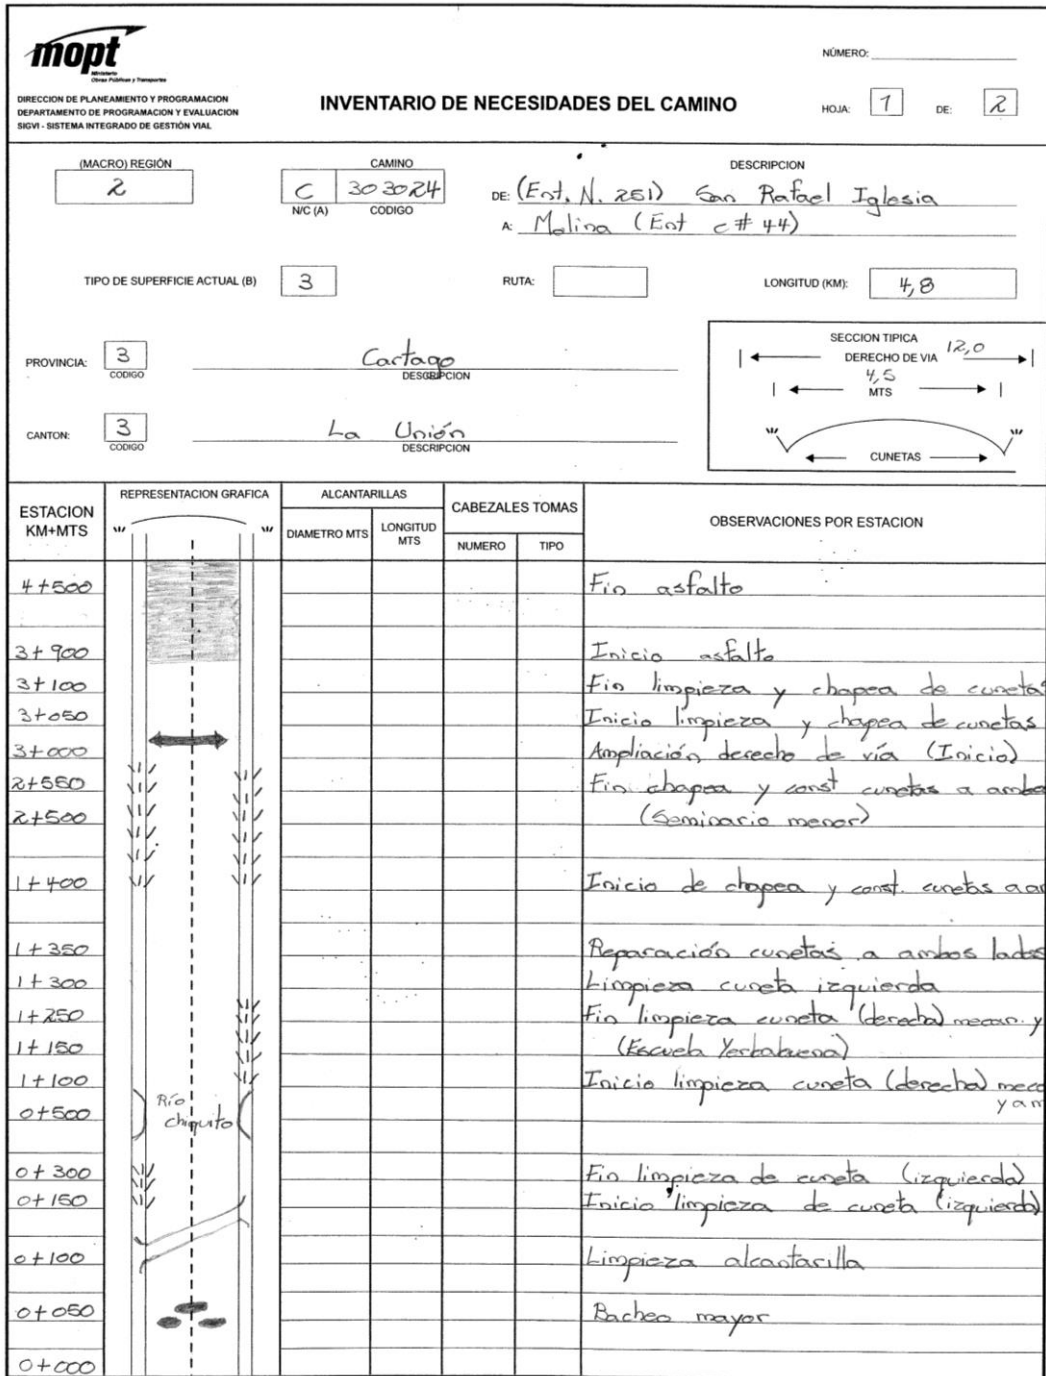 mopt
Ministerio
Obras Públicas y Transportes
DIRECCION DE PLANEAMIENTO Y PROGRAMACION
DEPARTAMENTO DE PROGRAMACION Y EVALUACION
SIGVI - SISTEMA INTEGRADO DE GESTIÓN VIAL
INVENTARIO DE NECESIDADES DEL CAMINO
NÚMERO:
HOJA: 1 DE: 2
(MACRO) REGIÓN
2
CAMINO
C 303024
N/C (A) CODIGO
DESCRIPCION
DE: (Ent. N. 251) San Rafael Iglesia
A: Molina (Ent c # 44)
TIPO DE SUPERFICIE ACTUAL (B) 3
RUTA:
LONGITUD (KM): 4,8
PROVINCIA: 3 Cartago
CODIGO DESCRIPCION
CANTON: 3 La Unión
CODIGO DESCRIPCION
SECCION TIPICA
DERECHO DE VIA 12,0
4,5
MTS
CUNETAS
ESTACION
KM+MTS
REPRESENTACION GRAFICA
ALCANTARILLAS
DIAMETRO MTS
LONGITUD
MTS
CABEZALES TOMAS
NUMERO TIPO
OBSERVACIONES POR ESTACION
4+500 Fin asfalto
3+900 Inicio asfalto
3+100 Fin limpieza y chapea de cunetas
3+050 Inicio limpieza y chapea de cunetas
3+000 Ampliación derecho de vía (Inicio)
2+550 Fin chapea y const cunetas a ambo
2+500 (Seminario menor)
1+400 Inicio de chapea y const. cunetas a
1+350 Reparación cunetas a ambos lados
1+300 Limpieza cuneta izquierda
1+250 Fin limpieza cuneta (derecha) mecan. y
1+150 (Escuela Yerbabuena)
1+100 Inicio limpieza cuneta (derecha) meca
y am
0+500 Río chiquito
0+300 Fin limpieza de cuneta (izquierda)
0+150 Inicio limpieza de cuneta (izquierda)
0+100 Limpieza alcantarilla
0+050 Bacheo mayor
0+000